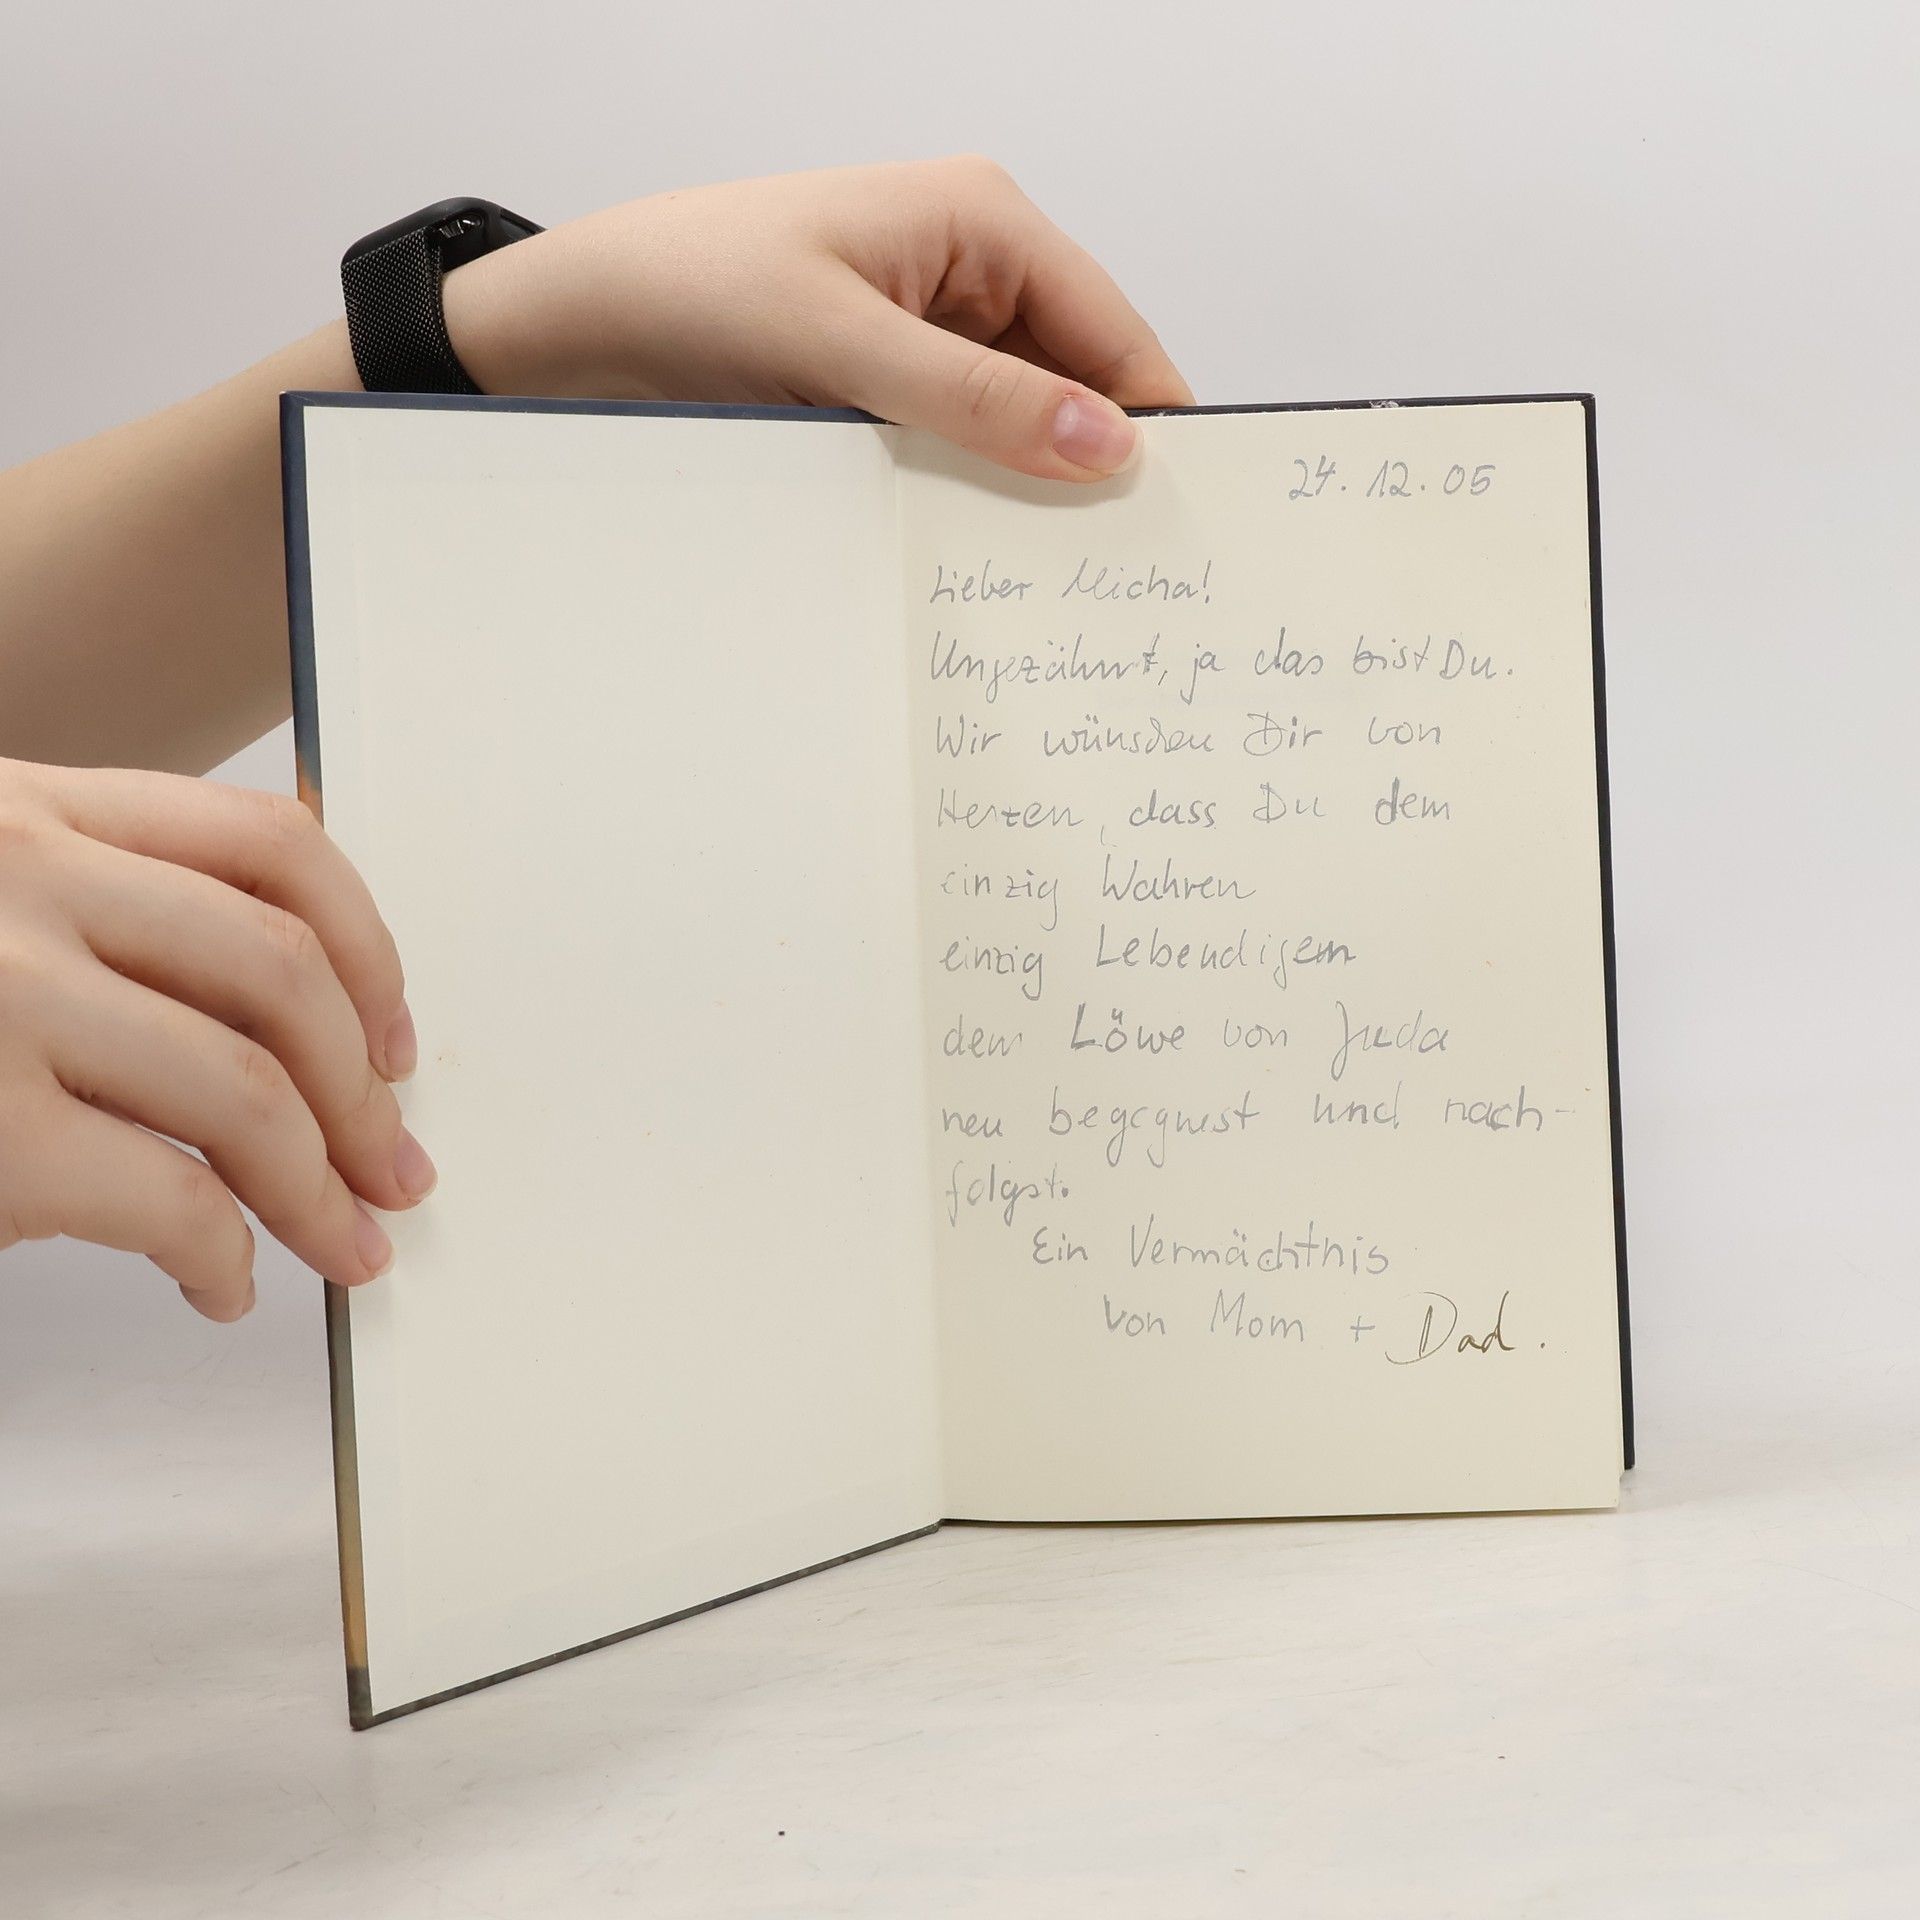 24. 12. 05
Lieber Micha!
Ungezähmt, ja das bist Du.
Wir wünschen Dir von
Herzen, dass Du dem
einzig Wahren
einzig Lebendigem
dem Löwe von Juda
neu begegnest und nach-
folgst.
Ein Vermächtnis
von Mom + Dad.